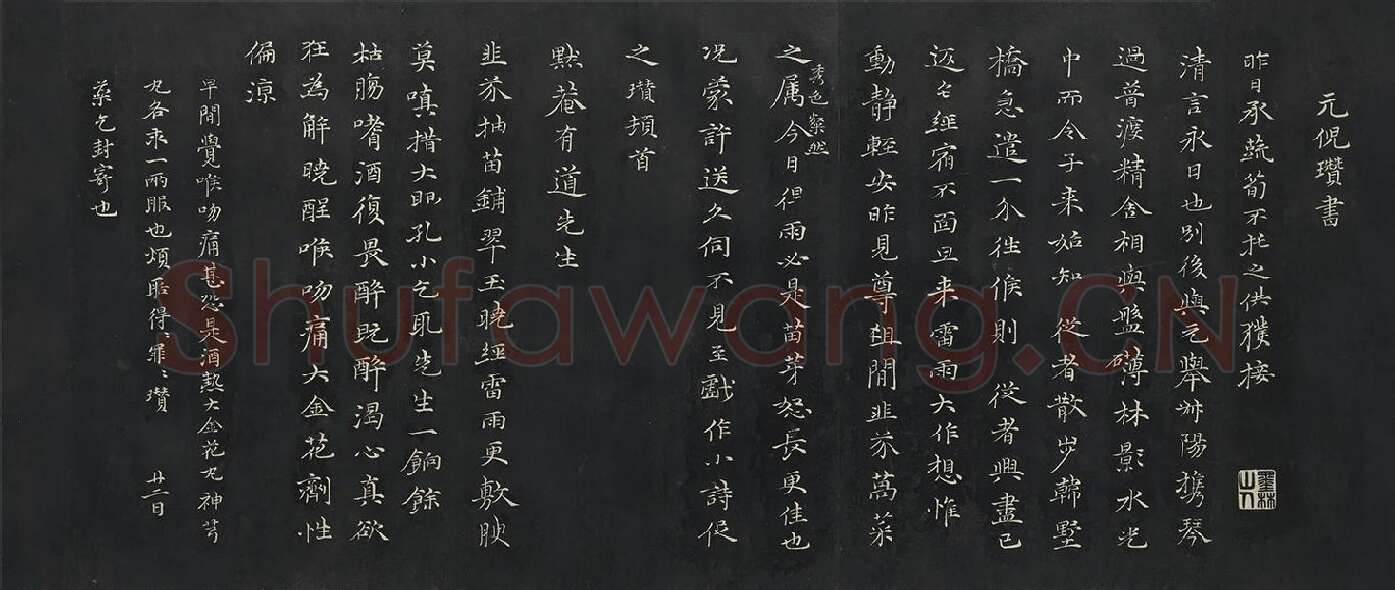 元倪瓚書
昨日承蔬筍不托之供獲接
清言永日也別後與元舉卅陽携琴
過普渡精舍相與盤礴林影水光
中而令子来始知 從者散步韓墅
橋急遣一介往候則 從者興盡已
返已經宿不面旦来雷雨大作想惟
動靜輕安昨見尊俎間韭芥萬菜
秀色粲然
之属今日得雨必是苗芽怒長更佳也
况蒙許送久伺不見至戲作小詩促
之瓚頓首
黙菴有道先生
韭芥抽苗鋪翠玉曉經雷雨更敷腴
莫嗔措大眼孔小乞取先生一餉餘
枯腸嗜酒復畏醉既醉渴心真欲
狂為解曉酲喉吻痛大金花劑性
偏涼
早間覺喉吻痛甚恐是酒熱大金花丸神芎
丸各求一兩服也煩聒得罪〻瓚
藥乞封寄也
廿二日
墨林山人
Shufawang.CN